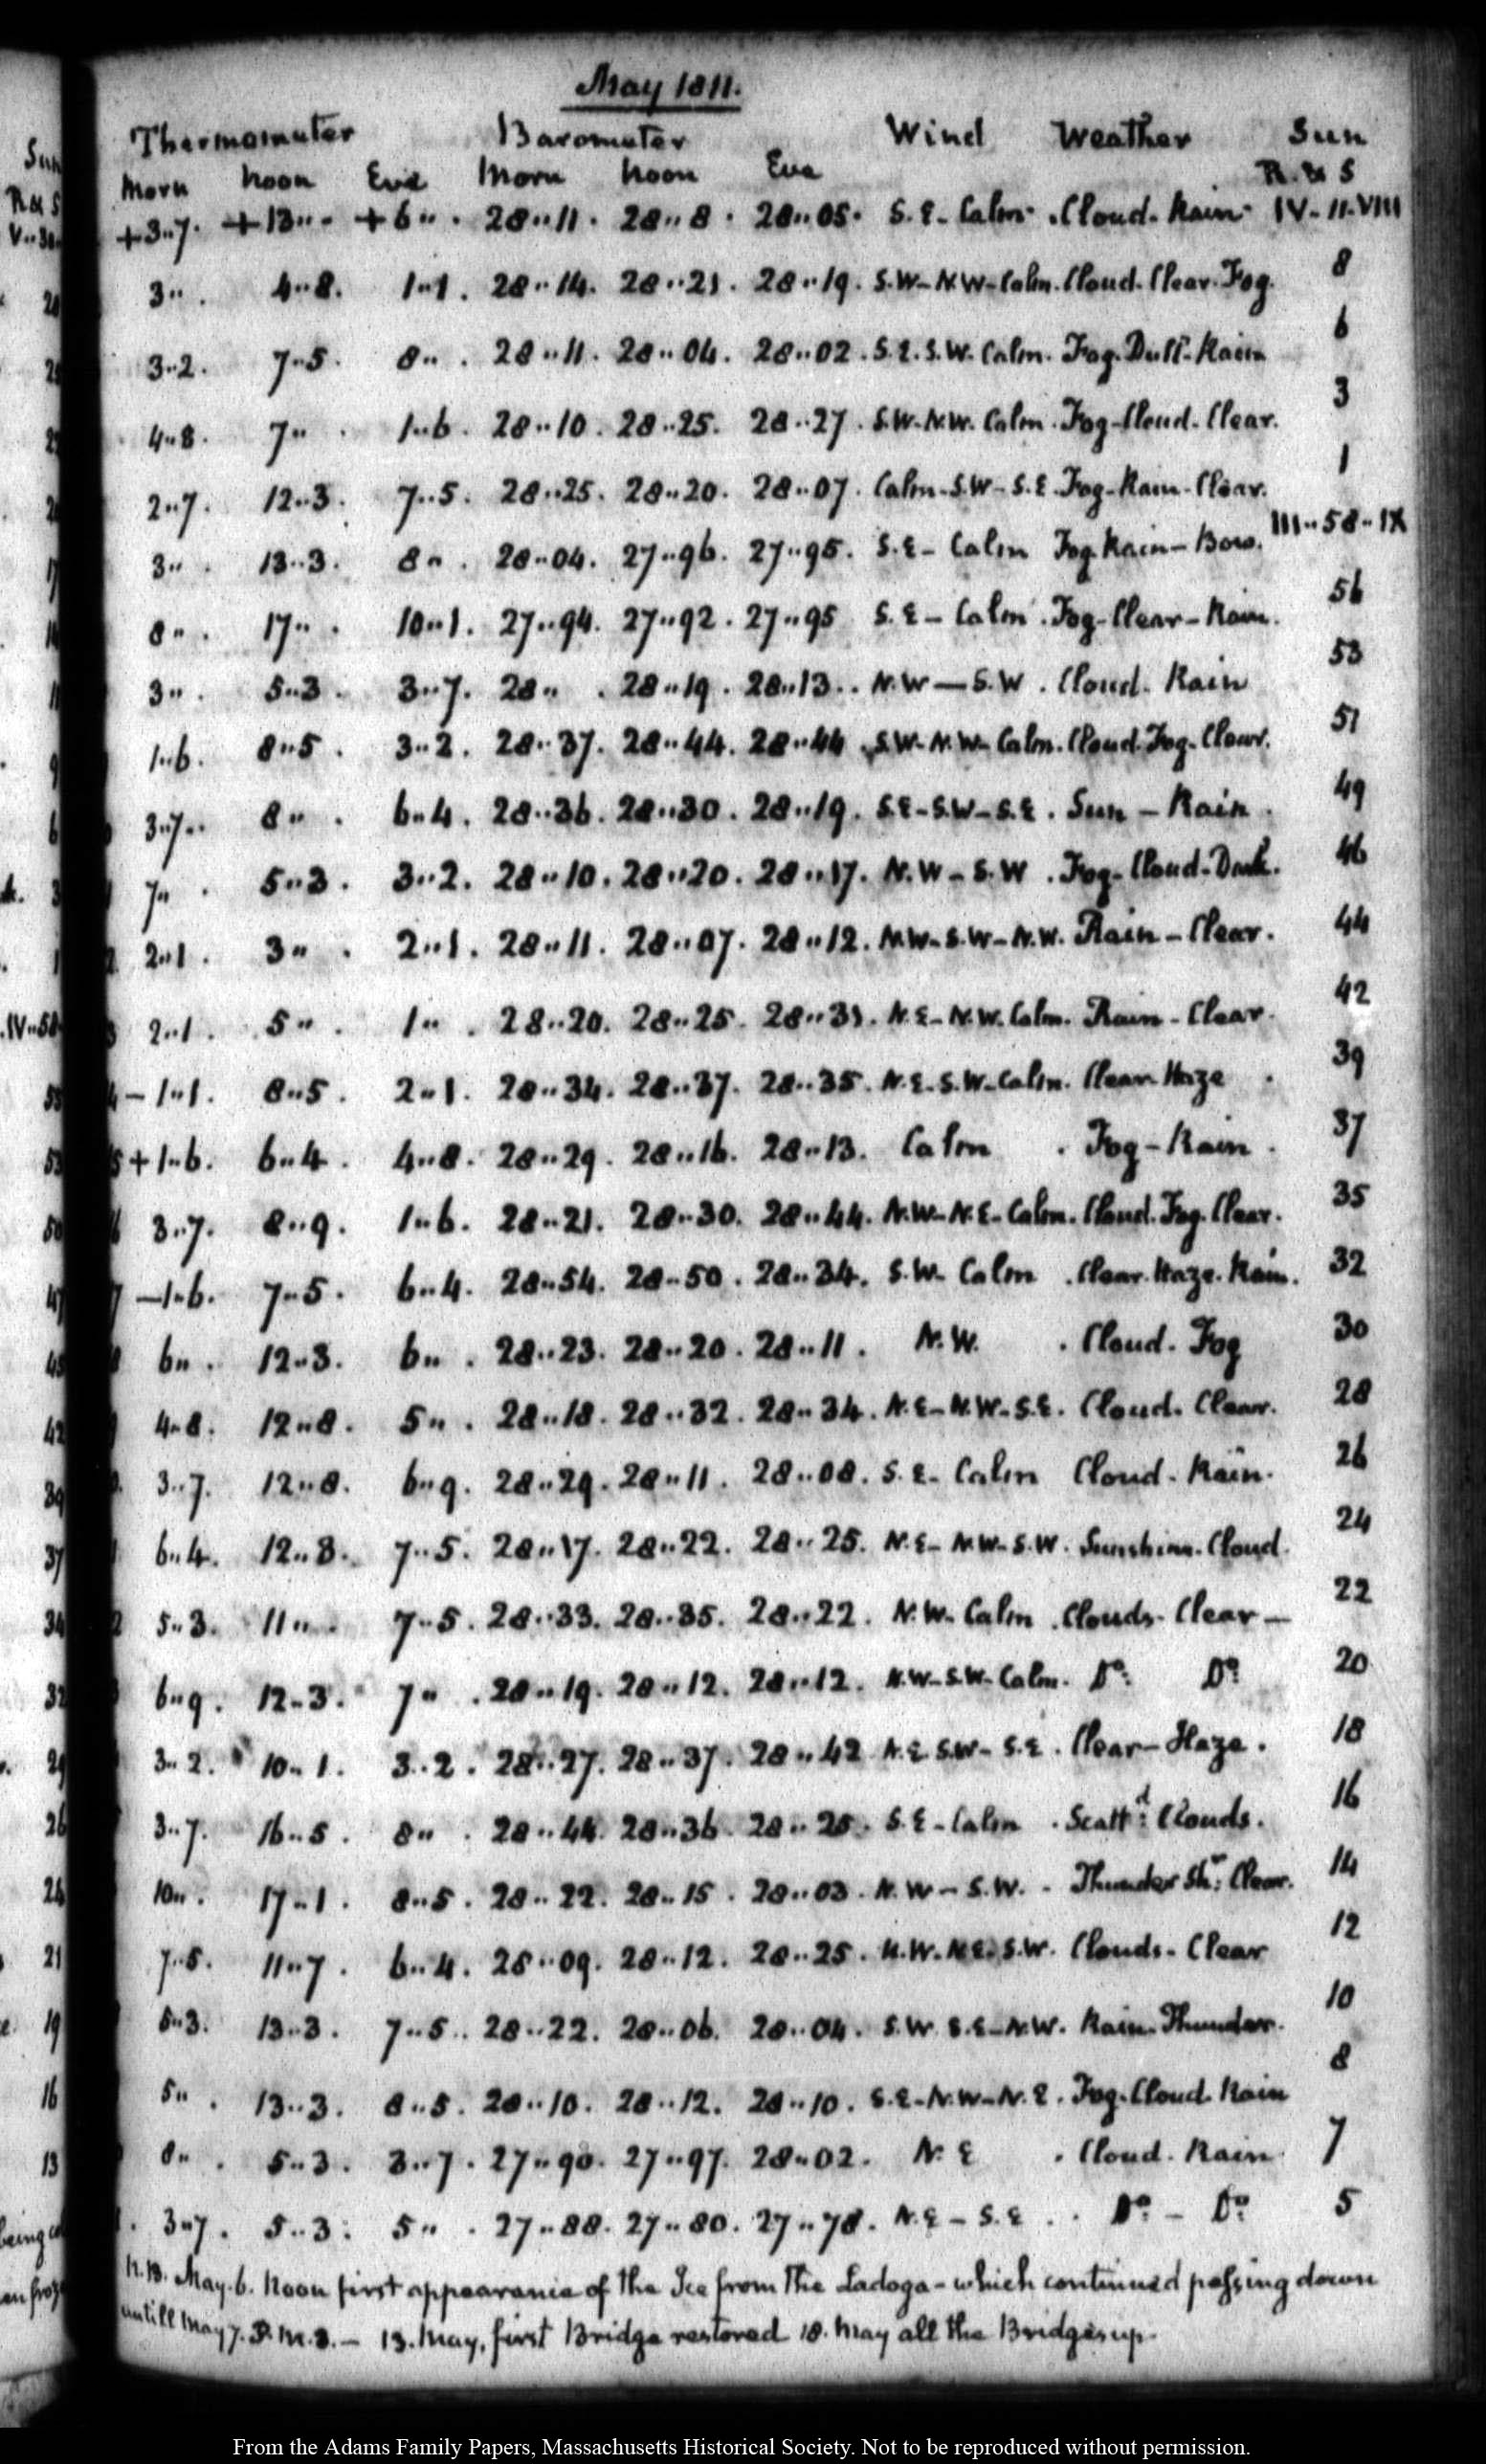 May 1811.
Thermometer Barometer Wind Weather Sun
Morn Noon Eve Morn Noon Eve R. & S
+3..7. +13.. . +6.. . 28..11. 28..8. 28..05. S.E. Calm. Cloud. Rain. IV-11-VIII
3.. . 4..8. 1..1. 28..14. 28..21. 28..19. S.W-N.W-Calm. Cloud. Clear. Fog. 8
3..2. 7..5. 8.. . 28..11. 28..04. 28..02. S.E. S.W. Calm. Fog. Dull. Rain 6
4..8. 7.. . 1..6. 28..10. 28..25. 28..27. S.W-N.W. Calm. Fog-Cloud. Clear. 3
2..7. 12..3. 7..5. 28..25. 28..20. 28..07. Calm-S.W-S.E. Fog-Rain-Clear. 1
3.. . 13..3. 8.. . 28..04. 27..96. 27..95. S.E- Calm Fog Rain- III..58..IX
8.. . 17.. . 10..1. 27..94. 27..92. 27..95 S.E- Calm. Fog-Clear-Rain. 56
3.. . 5..3. 3..7. 28.. . 28..19. 28..13.. N.W-S.W. Cloud. Rain 53
1..6. 8..5. 3..2. 28..37. 28..44. 28..44 S.W-N.W-Calm. Cloud. Fog-Clear. 51
3..7.. 8.. . 6..4. 28..36. 28..30. 28..19. S.E-S.W-S.E. Sun - Rain. 49
7.. . 5..3. 3..2. 28..10. 28..20. 28..17. N.W-S.W. Fog-Cloud-Dark. 46
2..1. 3.. . 2..1. 28..11. 28..07. 28..12. N.W-S.W-N.W. Rain-Clear. 44
2..1. 5.. . 1.. . 28..20. 28..25. 28..31. N.E-N.W. Calm. Rain-Clear. 42
4 -1..1. 8..5. 2..1. 28..34. 28..37. 28..35. N.E-S.W-Calm. Clear Haze . 39
5 +1..6. 6..4. 4..8. 28..29. 28..16. 28..13. Calm . Fog-Rain. 37
6 3..7. 8..9. 1..6. 28..21. 28..30. 28..44. N.W-N.E-Calm. Cloud. Fog. Clear. 35
7 -1..6. 7..5. 6..4. 28..54. 28..50. 28..34. S.W. Calm . Clear. Haze. Rain. 32
6.. . 12..3. 6.. . 28..23. 28..20. 28..11. N.W. . Cloud. Fog 30
4..8. 12..8. 5.. . 28..18. 28..32. 28..34. N.E-N.W-S.E. Cloud. Clear. 28
3..7. 12..8. 6..9. 28..29. 28..11. 28..08. S.E. Calm Cloud. Rain. 26
6..4. 12..8. 7..5. 28..17. 28..22. 28..25. N.E- N.W-S.W. Sunshine. Cloud. 24
2 5..3. 11.. . 7..5. 28..33. 28..35. 28..22. N.W. Calm . Clouds. Clear- 22
6..9. 12..3. 7.. . 28..19. 28..12. 28..12. N.W-S.W-Calm. Do. Do. 20
3..2. 10..1. 3..2. 28..27. 28..37. 28..42 N.E S.W- S.E. Clear-Haze. 18
3..7. 16..5. 8.. . 28..44. 28..36. 28..25. S.E-Calm . Scattd: Clouds. 16
10.. . 17..1. 8..5. 28..22. 28..15. 28..03. N.W-S.W. - Thunder Shr: Clear. 14
7..5. 11..7. 6..4. 28..09. 28..12. 28..25. N.W. N.E. S.W. Clouds- Clear 12
5..3. 13..3. 7..5.. 28..22. 28..06. 28..04. S.W S.E-N.W. Rain. Thunder. 10
5.. . 13..3. 8..5. 28..10. 28..12. 28..10. S.E-N.W-N.E. Fog. Cloud. Rain 8
8.. . 5..3. 3..7. 27..90. 27..97. 28..02. N.E . Cloud. Rain. 7
3..7. 5..3. 5.. . 27..88. 27..80. 27..78. N.E-S.E . . Do. - Do. 5
N.B. May. 6. Noon first appearance of the Ice from The Ladoga-which continued passing down
untill May 7. P.M. 3.- 13. May, first Bridge restored 18. May all the Bridges up.
From the Adams Family Papers, Massachusetts Historical Society. Not to be reproduced without permission.